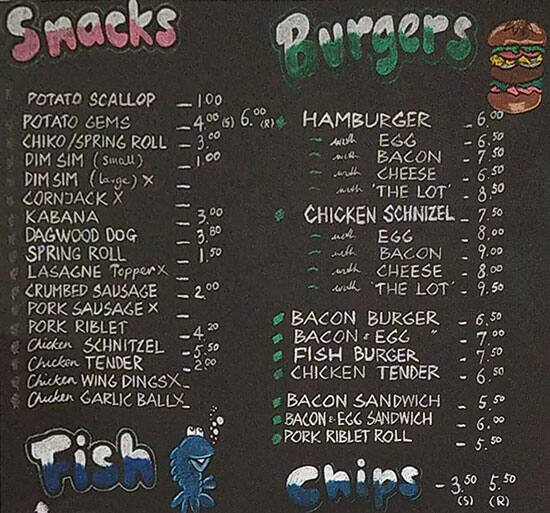 Snacks
POTATO SCALLOP - 1.00
POTATO GEMS - 4.00 (S) 6.00 (R)
CHIKO/SPRING ROLL - 3.00
DIM SIM (small) - 1.00
DIM SIM (large) X
CORNJACK X
KABANA - 3.00
DAGWOOD DOG - 3.80
SPRING ROLL - 1.50
LASAGNE Topper X
CRUMBED SAUSAGE - 2.00
PORK SAUSAGE X
PORK RIBLET - 4.20
Chicken SCHNITZEL - 5.50
Chicken TENDER - 2.00
Chicken WING DINGS X
Chicken GARLIC BALL X
Fish
Burgers
HAMBURGER - 6.00
" with EGG - 6.50
" with BACON - 7.50
" with CHEESE - 6.50
" with 'THE LOT' - 8.50
CHICKEN SCHNIZEL - 7.50
" with EGG - 8.00
" with BACON - 9.00
" with CHEESE - 8.00
" with 'THE LOT' - 9.50
BACON BURGER - 6.50
BACON & EGG " - 7.00
FISH BURGER - 7.50
CHICKEN TENDER - 6.50
BACON SANDWICH - 5.50
BACON & EGG SANDWICH - 6.00
PORK RIBLET ROLL - 5.50
Chips - 3.50 (S) 5.50 (R)